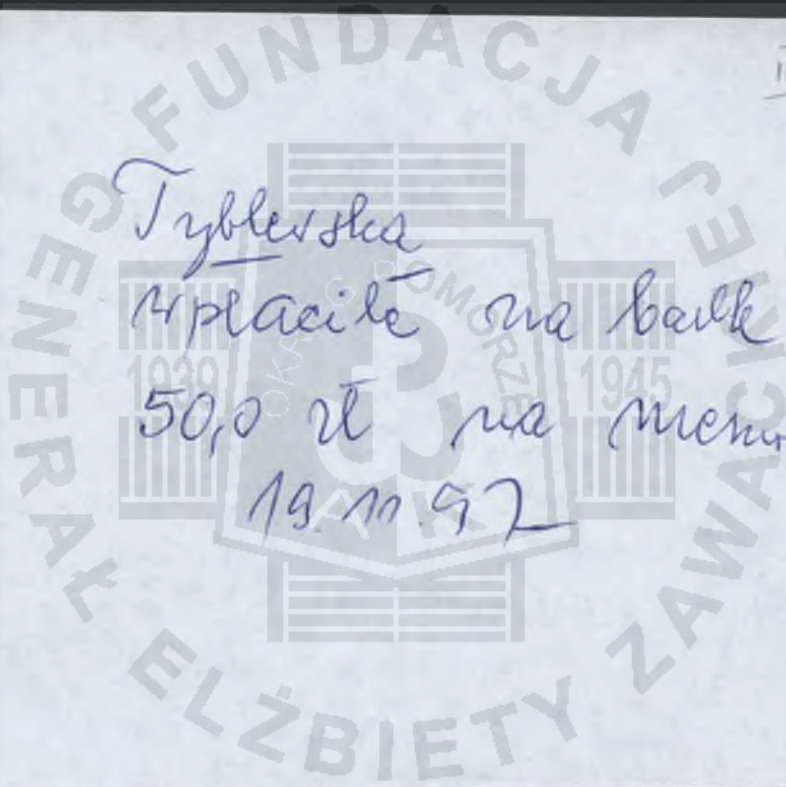 Tyblewska
wpłaciła na bank
50,0 zł na
19.11.97
FUNDACJA
GENERAŁ ELŻBIETY ZAWACKIEJ
OKRĘG POMORZE
1939 1945
AK